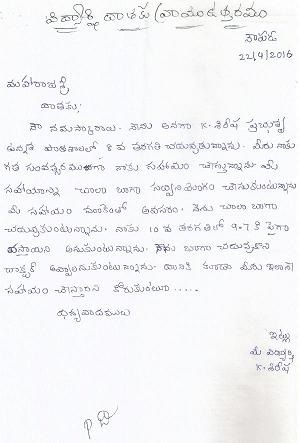 విద్యార్థి దాతకు వ్రాయు ఉత్తరము
కావలి
22/4/2016
మహారాజశ్రీ
దాతకు,
నా నమస్కారాలు. నేను అనగా K. శిరీష ప్రభుత్వ
ఉన్నత పాఠశాలలో 8 వ తరగతి చదువుకుంటున్నాను. మీరు నాకు
గత సంవత్సరము నాకు సహాయం చేస్తున్నారు. మీ
సహాయాన్ని చాలా బాగా సద్వినియోగం చేసుకుంటున్నాను
మీ సహాయం మాకెంతో అవసరం. నేను చాలా బాగా
చదువుకుంటున్నాను. నాకు 10 వ తరగతిలో 9.7 కి పైగా
వస్తాయని అనుకుంటున్నాను. నేను బాగా చదువుకొని
డాక్టర్ అవ్వాలనుకుంటున్నాను. దానికి కూడా మీరు ఇలానే
సహాయం చేస్తారని కోరుకుంటూ.....
ధన్యవాదములు
ఇట్లు
మీ విద్యార్థి
K. శిరీష